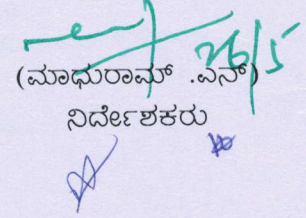 26/5
(ಮಾಧುರಾಮ್ .ಎನ್)
ನಿರ್ದೇಶಕರು